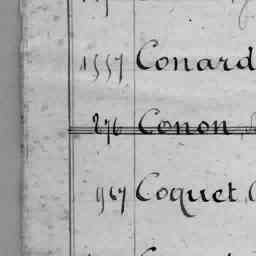 1557 Conard
276 Conon
967 Coquet